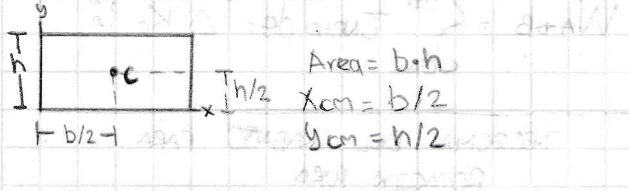 y
h
c
h/2
x
b/2
Area = b·h
Xcm = b/2
Ycm = h/2